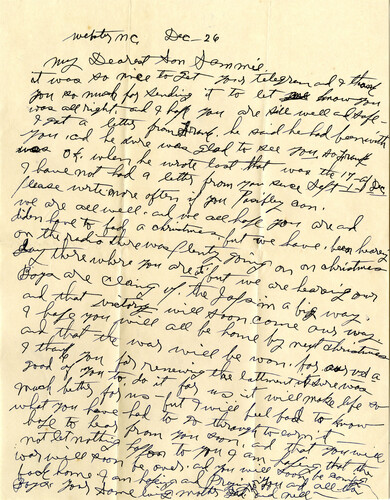 Webster NC, Dec-26
My Dearest Son Sammie
it was so nice to get your telegram and I thank
you so much for sending it to let me know you
was all right. and I hope you are still well and safe-
I got a letter from he said he had been with
you. and he sure was glad to see you. so
was OK. when he wrote last that was the 17 of Dec
I have not had a letter from you since Sept 1-
Please write more often if you possibly can.
we are all well. and we all hope you are and
didn have to bad a christmas. but we have been hearing
on the radio there was plenty going on on christmas
Day there where you are at. but we are hearing our
Boys are clening up the Japs in a big way.
and that victory will soon come our way.
I hope you will all be home by next christmas
and that the war will be won. for
I thank you for renewing the. it sure was
good of you to do it for us. it will make life so
much better for us - but I will feel bad to know
what you have had to go through to earn it
hope to hear from you soon. and that you will
not let nothing happen to you I am that the
war will soon be over. and you will soon be
back home I am hoping and you and all the
Boys your loving mother Dad and all